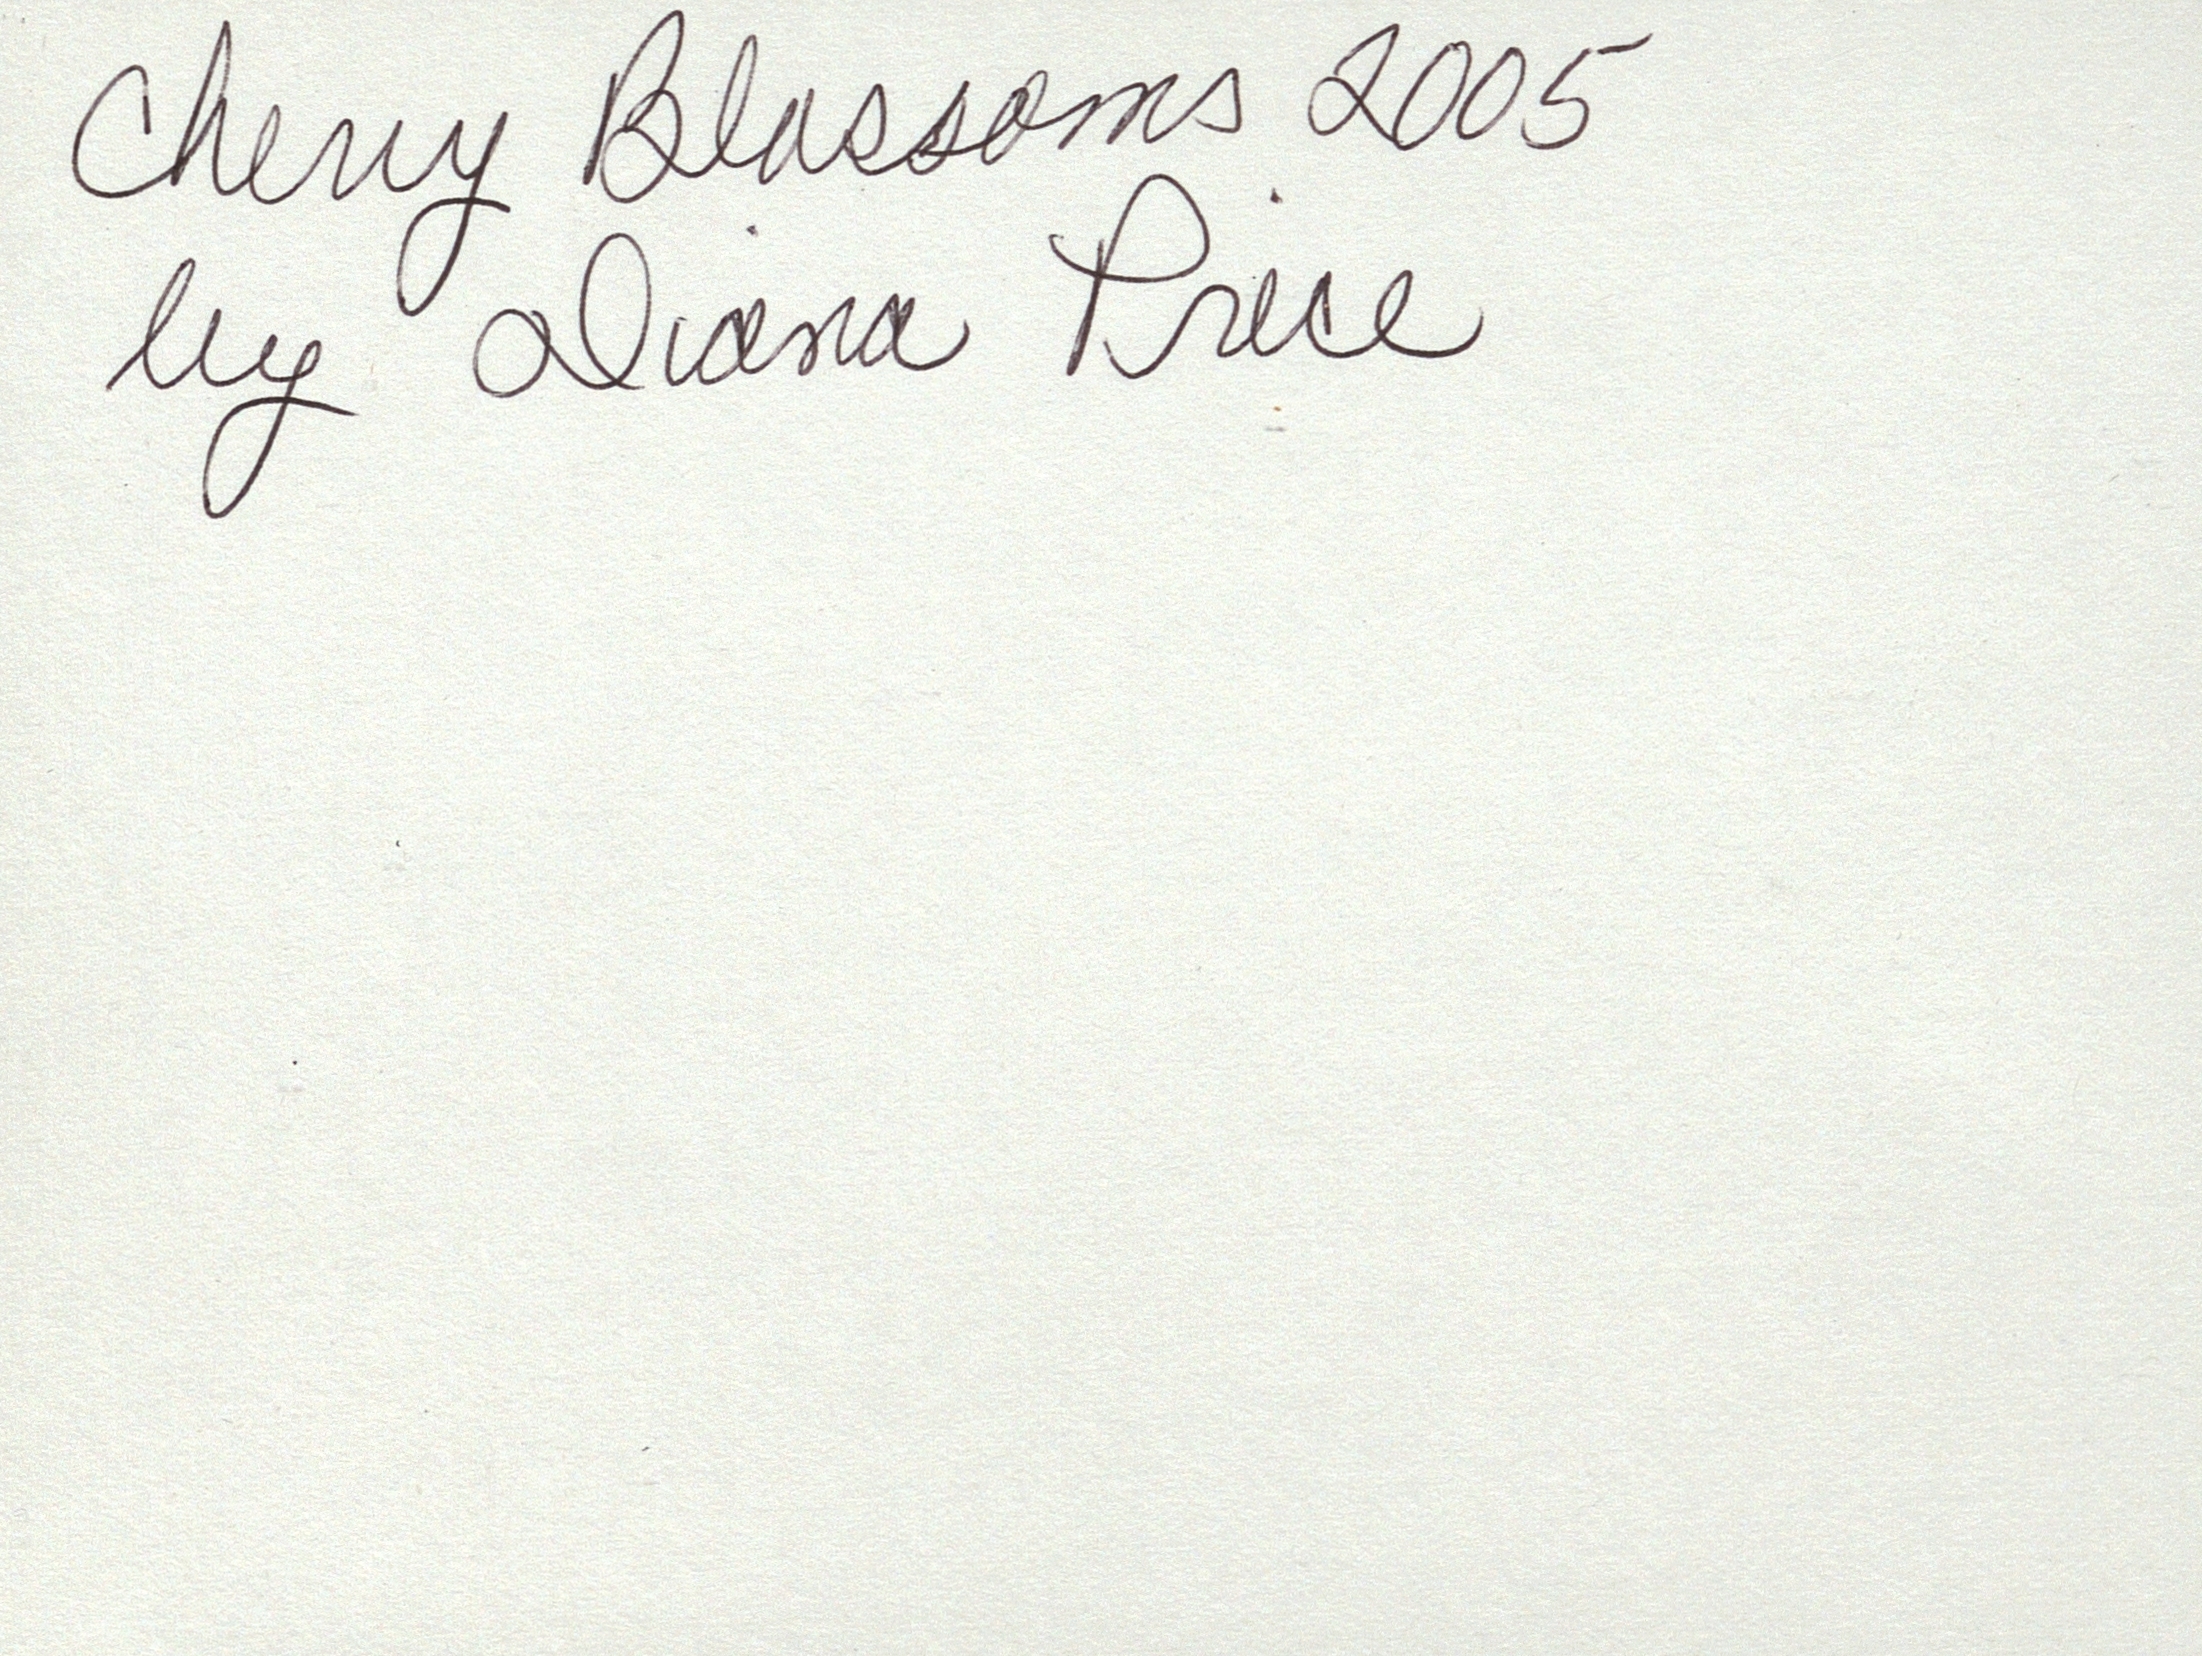 Cherry Blossoms 2005
by Diana Price